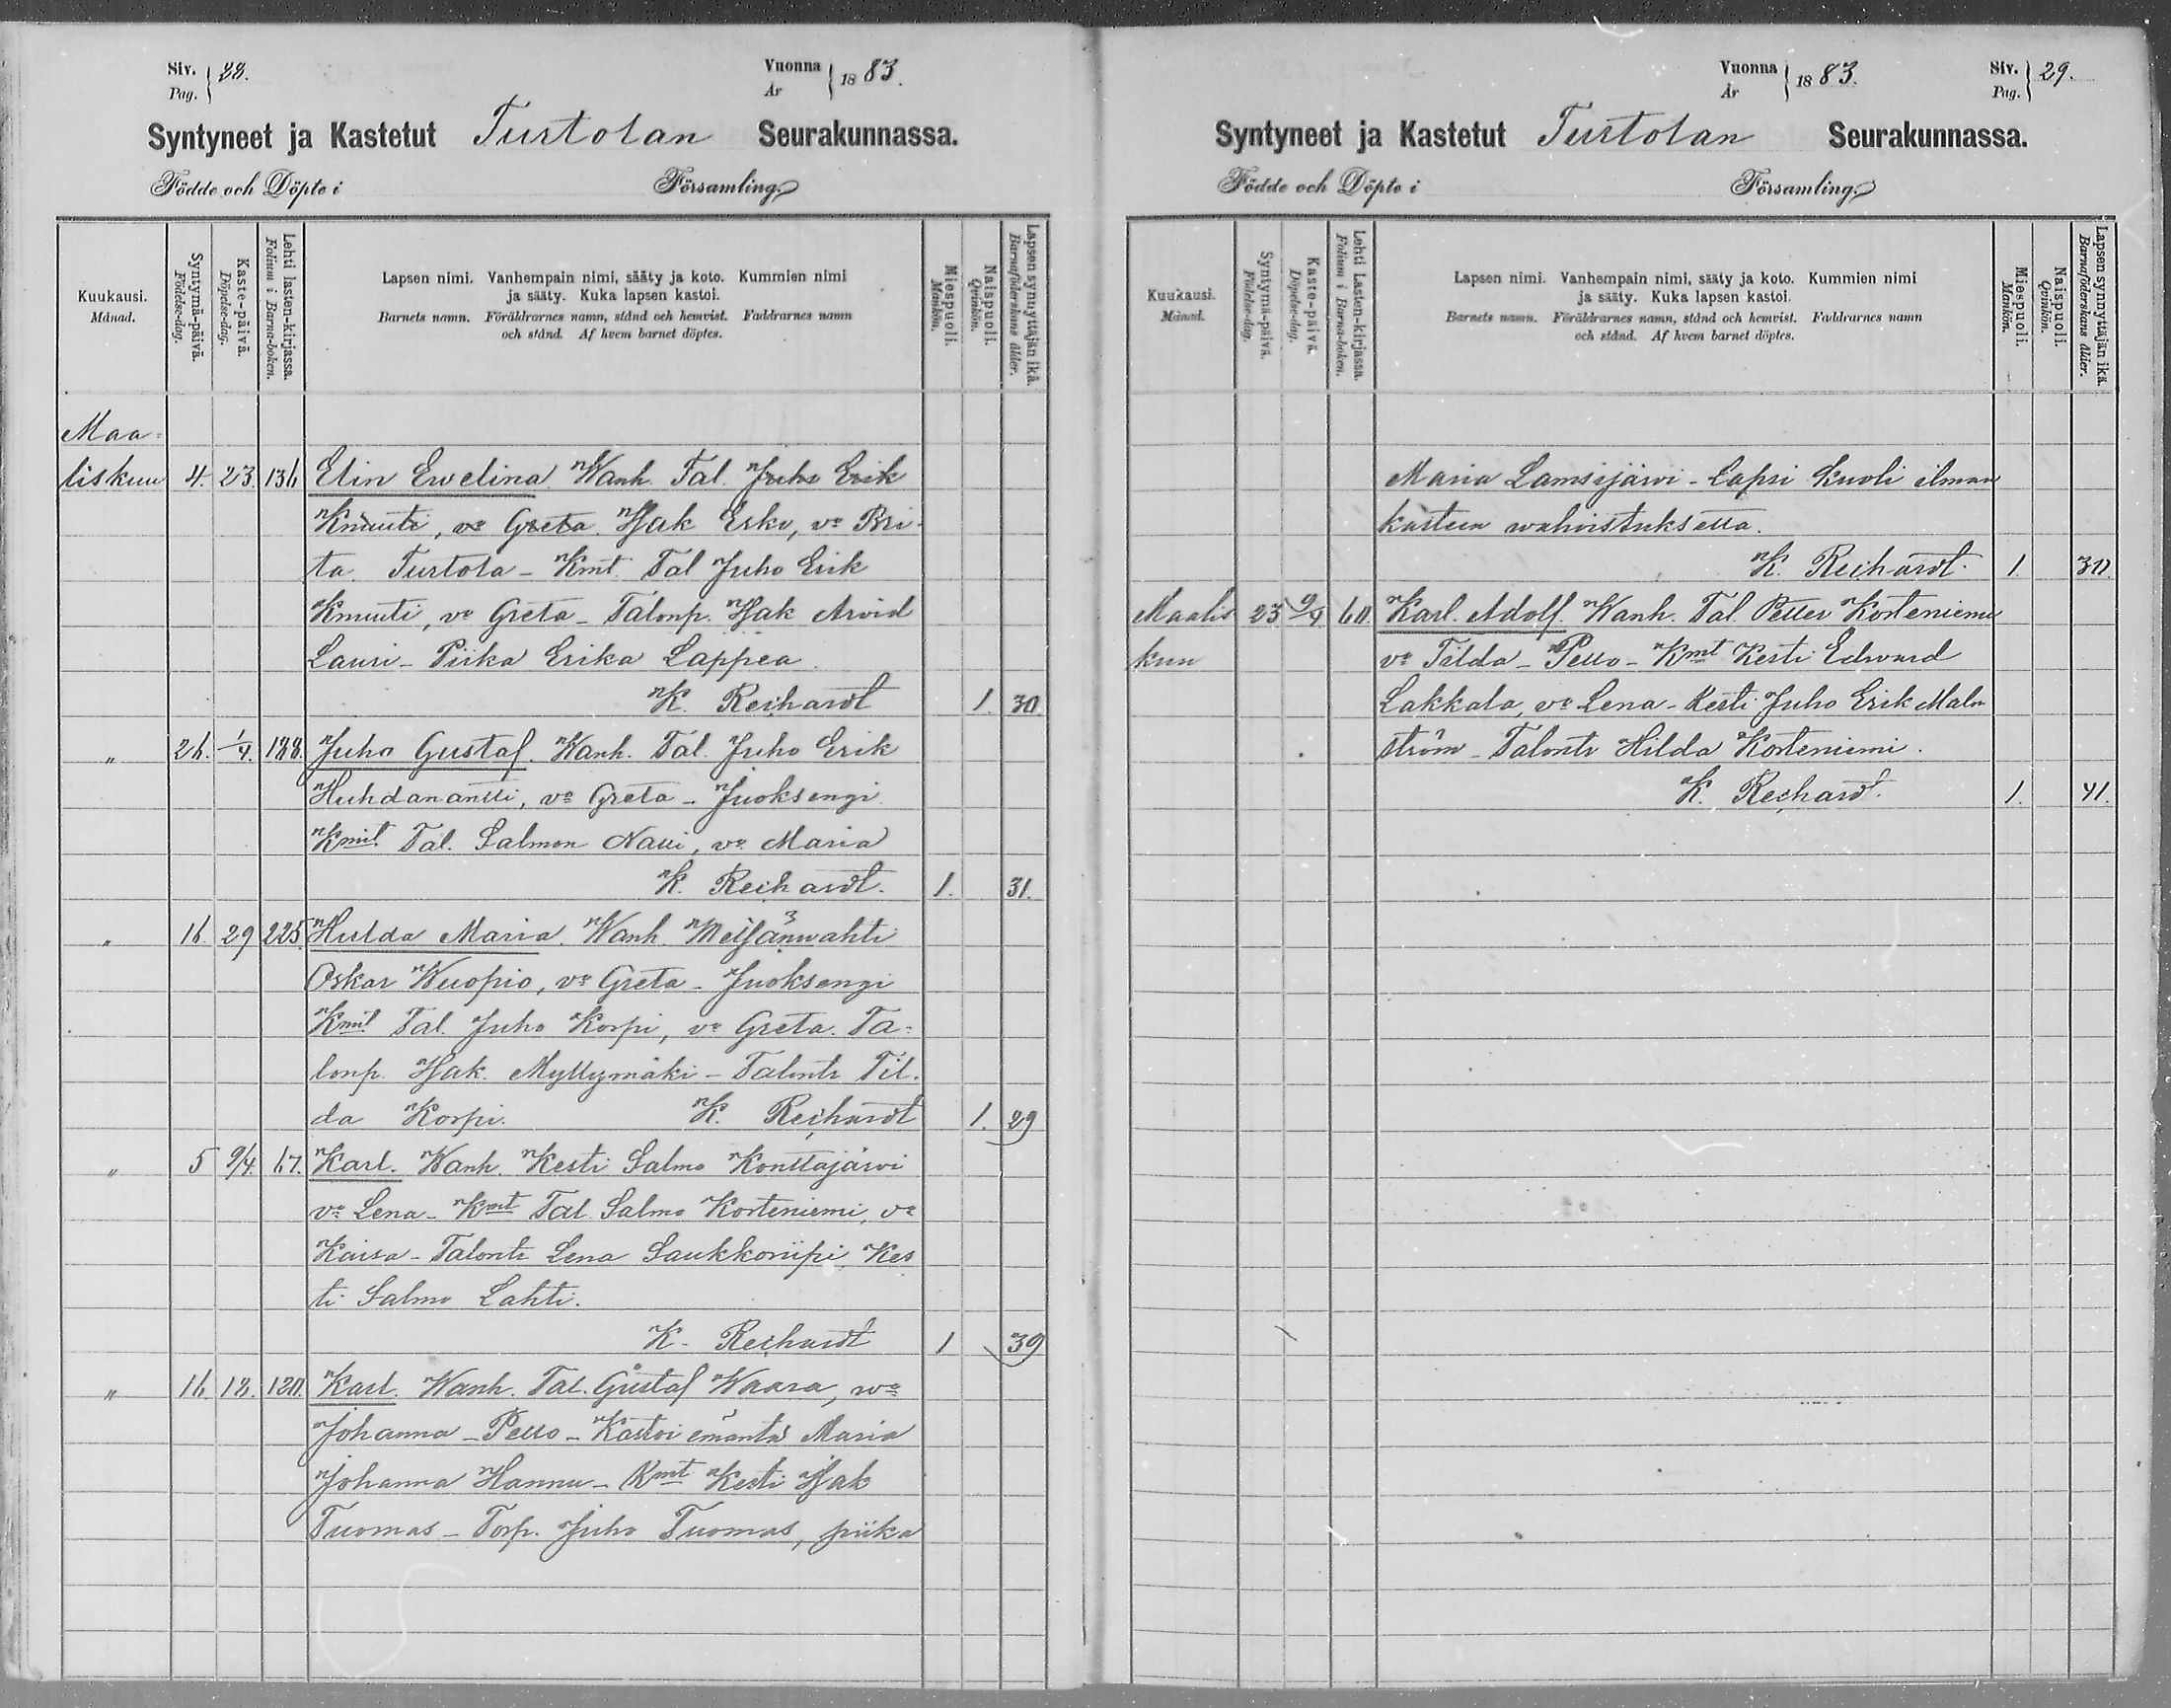 Siv. Pag. 28.
Vuonna År 1883.
Syntyneet ja Kastetut Turtolan Seurakunnassa.
Födde och Döpte i Församling.
Kuukausi. Månad.
Syntymä-päivä. Födelse-dag.
Kaste-päivä. Döpelse-dag.
Lehti lasten-kirjassa. Folium i Barna-boken.
Lapsen nimi. Vanhempain nimi, sääty ja koto. Kummien nimi
ja sääty. Kuka lapsen kastoi.
Barnets namn. Föräldrarnes namn, stånd och hemvist. Faddrarnes namn
och stånd. Af hvem barnet döptes.
Miespuoli. Mankön.
Naispuoli. Qvinkön.
Lapsen synnyttäjän ikä. Barnaföderskans ålder.
Maa-
liskuu 4. 23. 136 Elin Ewelina. Wanh. Tal. Juho Erik
Knuuti, vo Greta. Hjak Esko, vo Bri-
ta. Turtola - Kmt. Tal Juho Erik
Knuuti, vo Greta - Talonp. Hjak Arvid
Lauri - Piika Erika Lappea
K. Rechardt 1. 30.
" 26. 1/4. 188. Juho Gustaf. Wanh. Tal. Juho Erik
Huhdanantti, vo Greta - Juoksengi
Kmt. Tal. Salmon Naui, vo Maria
K. Rechardt. 1. 31.
" 16. 29 225. Hulda Maria. Wanh. Meisänwahti
Oskar Wuopio, vo Greta - Juoksengi
Kmt Tal. Juho Korpi, vo Greta. Ta-
lonp. Hjak. Myllymäki - Talontr Til-
da Korpi. K. Rechardt 1. 29
" 5 9/4. 67. Karl. Wanh. Kesti Salmo Konttajärvi
vo Lena - Kmt Tal. Salmo Korteniemi, vo
Kaisa - Talontr Lena Saukkoriipi. Kes
ti Salmo Lahti.
K. Rechardt 1 39
" 16. 18. 130. Karl. Wanh. Tal. Gustaf Waara, wo
Johanna - Pello - Kastoi emäntä Maria
Johanna Hannu - Kmt Kesti Hjak
Tuomas - Torp. Juho Tuomas, piika
Vuonna År 1883.
Siv. Pag. 29.
Syntyneet ja Kastetut Turtolan Seurakunnassa.
Födde och Döpte i Församling.
Kuukausi. Månad.
Syntymä-päivä. Födelse-dag.
Kaste-päivä. Döpelse-dag.
Lehti Lasten-kirjassa. Folium i Barna-boken.
Lapsen nimi. Vanhempain nimi, sääty ja koto. Kummien nimi
ja sääty. Kuka lapsen kastoi.
Barnets namn. Föräldrarnes namn, stånd och hemvist. Faddrarnes namn
och stånd. Af hvem barnet döptes.
Miespuoli. Mankön.
Naispuoli. Qvinkön.
Lapsen synnyttäjän ikä. Barnaföderskans ålder.
Maria Lamsijärvi - Lapsi kuoli ilman
kasteen wahvistuksetta.
K. Rechardt. 1.
Maalis 23 9/4. 60. Karl. Adolf. Wanh. Tal. Petter Korteniemi
kuu vo Tilda - Pello - Kmt Kesti Edward
Lakkala, vo Lena - Kesti Juho Erik Malm
ström - Talontr Hilda Korteniemi.
K. Rechardt. 1. 41.